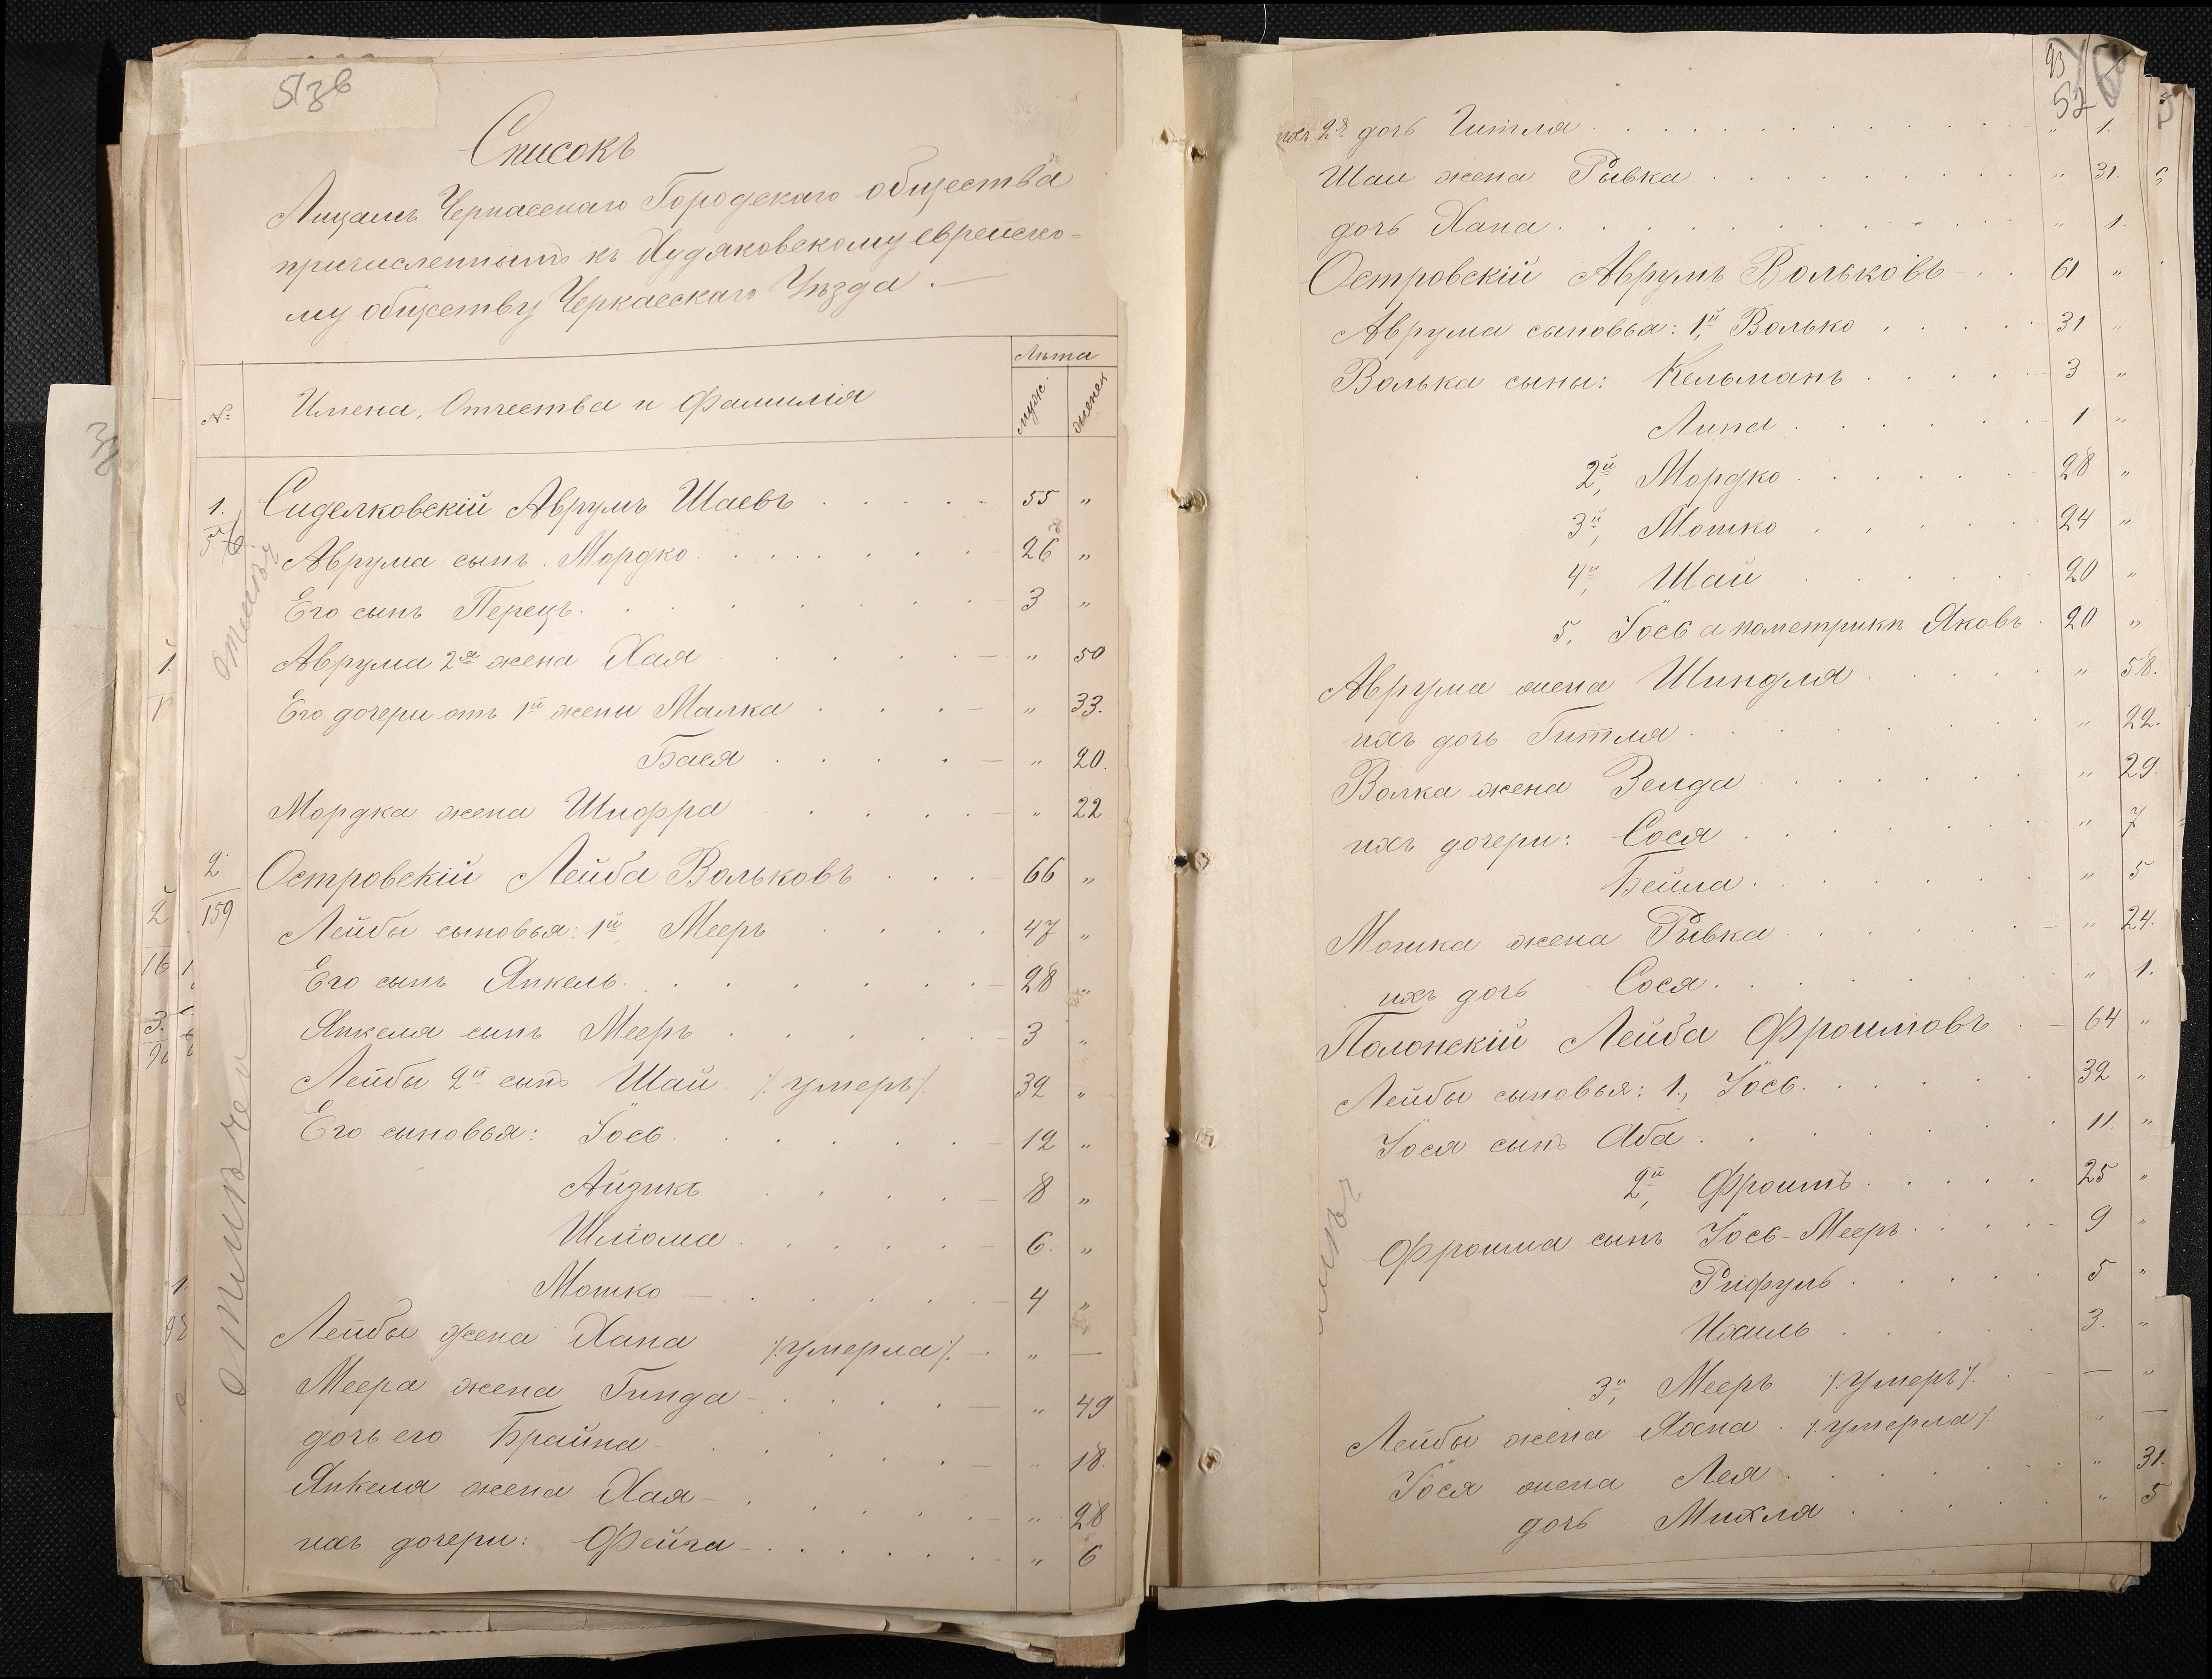 51 зв
Списокъ
Лицамъ Черкасскаго Городскаго общества
причисленнымъ къ Худяковскому еврейско-
му обществу Черкасскаго Уѣзда.—
№ Имена, Отчества и Фамилія Лѣта муж. женск
1. Сиделковскій Аврумъ Шаевъ 55 "
56 Аврума сынъ Мордко 26 "
Его сынъ Перецъ 3 "
Аврума 2я жена Хая " 50
Его дочери отъ 1й жены Малка " 33.
Бася " 20.
Мордка жена Шифра " 22
2. Островскій Лейба Вольковъ 66 "
159 Лейбы сыновья: 1й, Мееръ 47 "
Его сынъ Янкель 28 "
Янкеля сынъ Мееръ 3 "
Лейбы 2й сынъ Шай /умеръ/. 32 "
Его сыновья: Іось 12 "
Айзикъ 8 "
Шліома 6. "
Мошко 4 "
Лейбы жена Хана /умерла/. " —
Меера жена Гинда " 49
дочь его Брайна " 18.
Янкеля жена Хая " 28
ихъ дочери: Фейга " 6
93
52
ихъ 2я дочь Гитля " 1.
Шаи жена Рывка " 31.
дочь Хана " 1.
Островскій Аврумъ Вольковъ 61 "
Аврума сыновья: 1й, Волько 31 "
Волька сыны: Кельманъ 3 "
Липа 1 "
2й, Мордко 28 "
3й, Мошко 24 "
4й, Шай 20 "
5, Іось а пометрикѣ Яковъ 20 "
Аврума жена Шиндля " 58.
ихъ дочь Гитля " 22.
Волка жена Зелда " 29.
ихъ дочери: Сося " 7
Бейла " 5
Мошка жена Рывка " 24.
ихъ дочь Сося " 1.
Полонскій Лейба Фроимовъ 64 "
Лейбы сыновья: 1, Іось 32 "
Іося сынъ Аба 11 "
2й, Фроимъ 25 "
Фроима сынъ Іось-Мееръ 9 "
Рифуль 5 "
Ихиль 3. "
3й, Мееръ /умеръ/. — "
Лейбы жена Хана /умерла/. " —
Іося жена Лея " 31.
дочь Михля " 5